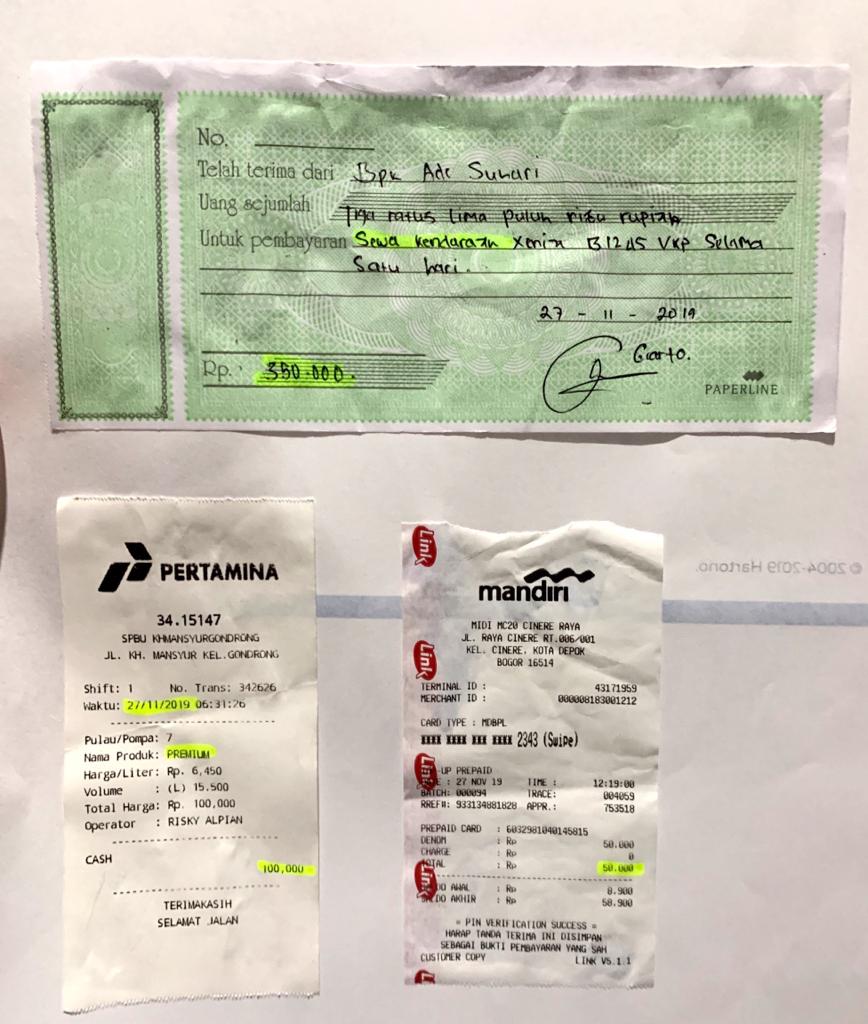 No.
Telah terima dari Bpk Ade Suhari
Uang sejumlah Tiga ratus lima puluh ribu rupiah
Untuk pembayaran Sewa kendaraan Xenia B 1245 VKP Selama
Satu hari.
27 - 11 - 2019
Giarto.
Rp. 350.000.
PAPERLINE
© 2004-2019 Hartono.
PERTAMINA
34.15147
SPBU KHMANSYURGONDRONG
JL. KH. MANSYUR KEL.GONDRONG
Shift: 1 No. Trans: 342626
Waktu: 27/11/2019 06:31:26
Pulau/Pompa: 7
Nama Produk: PREMIUM
Harga/Liter: Rp. 6,450
Volume : (L) 15.500
Total Harga: Rp. 100,000
Operator : RISKY ALPIAN
CASH
100,000
TERIMAKASIH
SELAMAT JALAN
Link
mandiri
MIDI MC20 CINERE RAYA
JL. RAYA CINERE RT.006/001
KEL. CINERE. KOTA DEPOK
BOGOR 16514
Link
TERMINAL ID : 43171959
MERCHANT ID : 000008183001212
CARD TYPE : MDBPL
XXXX XXXX XXX XXXX 2343 (Swipe)
Link
UP PREPAID
: 27 NOV 19 TIME : 12:19:00
BATCH: 000094 TRACE: 004059
RREF#: 933134881828 APPR.: 753518
PREPAID CARD : 6032981040145815
DENOM : Rp 50.000
CHARGE : Rp 0
TOTAL : Rp 50.000
Link
SALDO AWAL : Rp 8.900
SALDO AKHIR : Rp 58.900
= PIN VERIFICATION SUCCESS =
HARAP TANDA TERIMA INI DISIMPAN
SEBAGAI BUKTI PEMBAYARAN YANG SAH
CUSTOMER COPY LINK V5.1.1